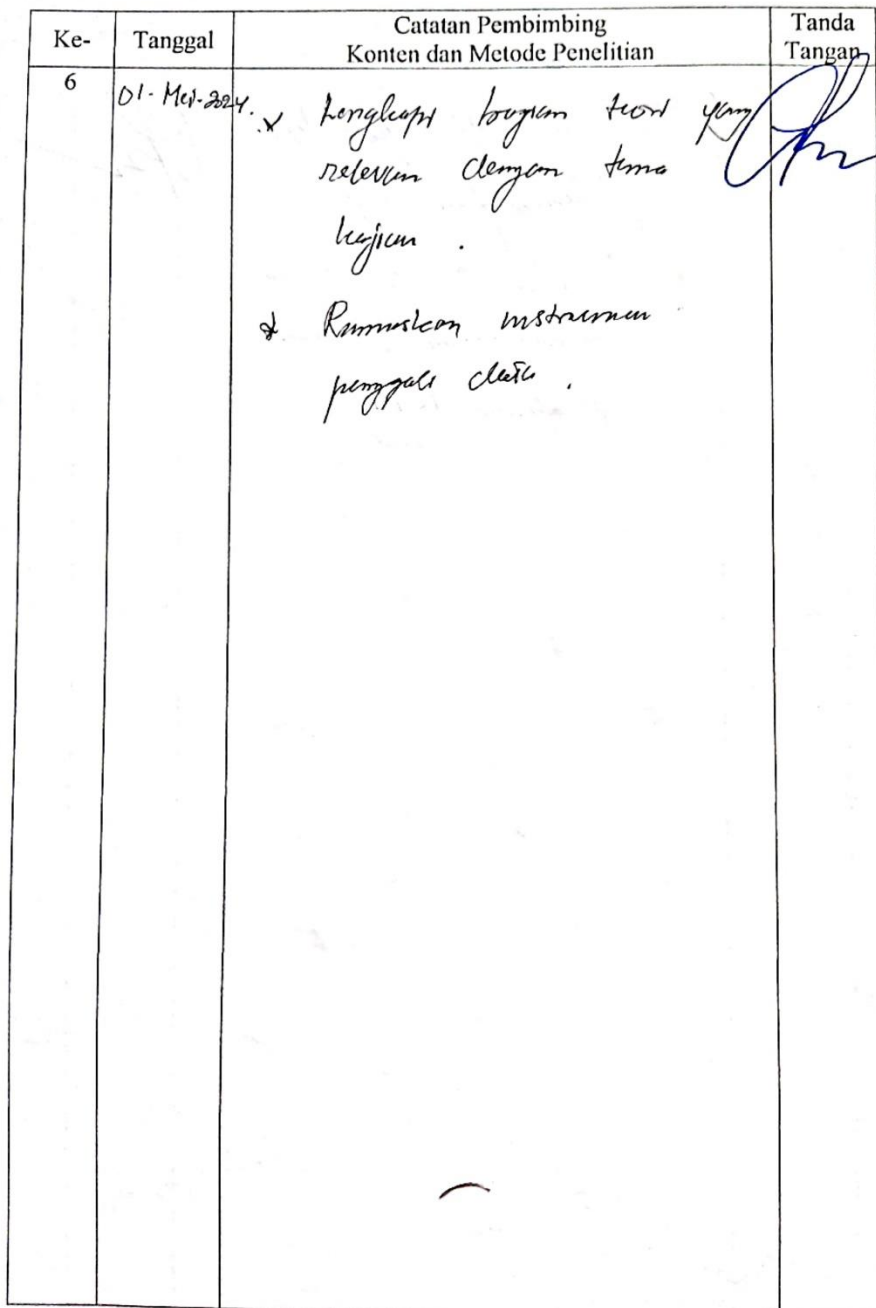 Ke-
Tanggal
Catatan Pembimbing
Konten dan Metode Penelitian
Tanda
Tangan
6
01-Mei-2024.
* Lengkapi bagian teori yang
relevan dengan tema
kajian .
* Rumuskan instrumen
penggali data .